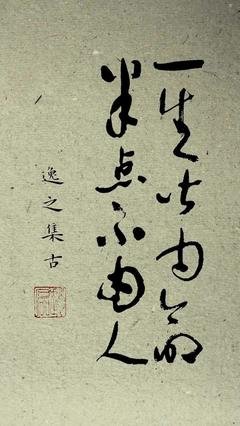 一生皆由命
半点不由人
逸之集古